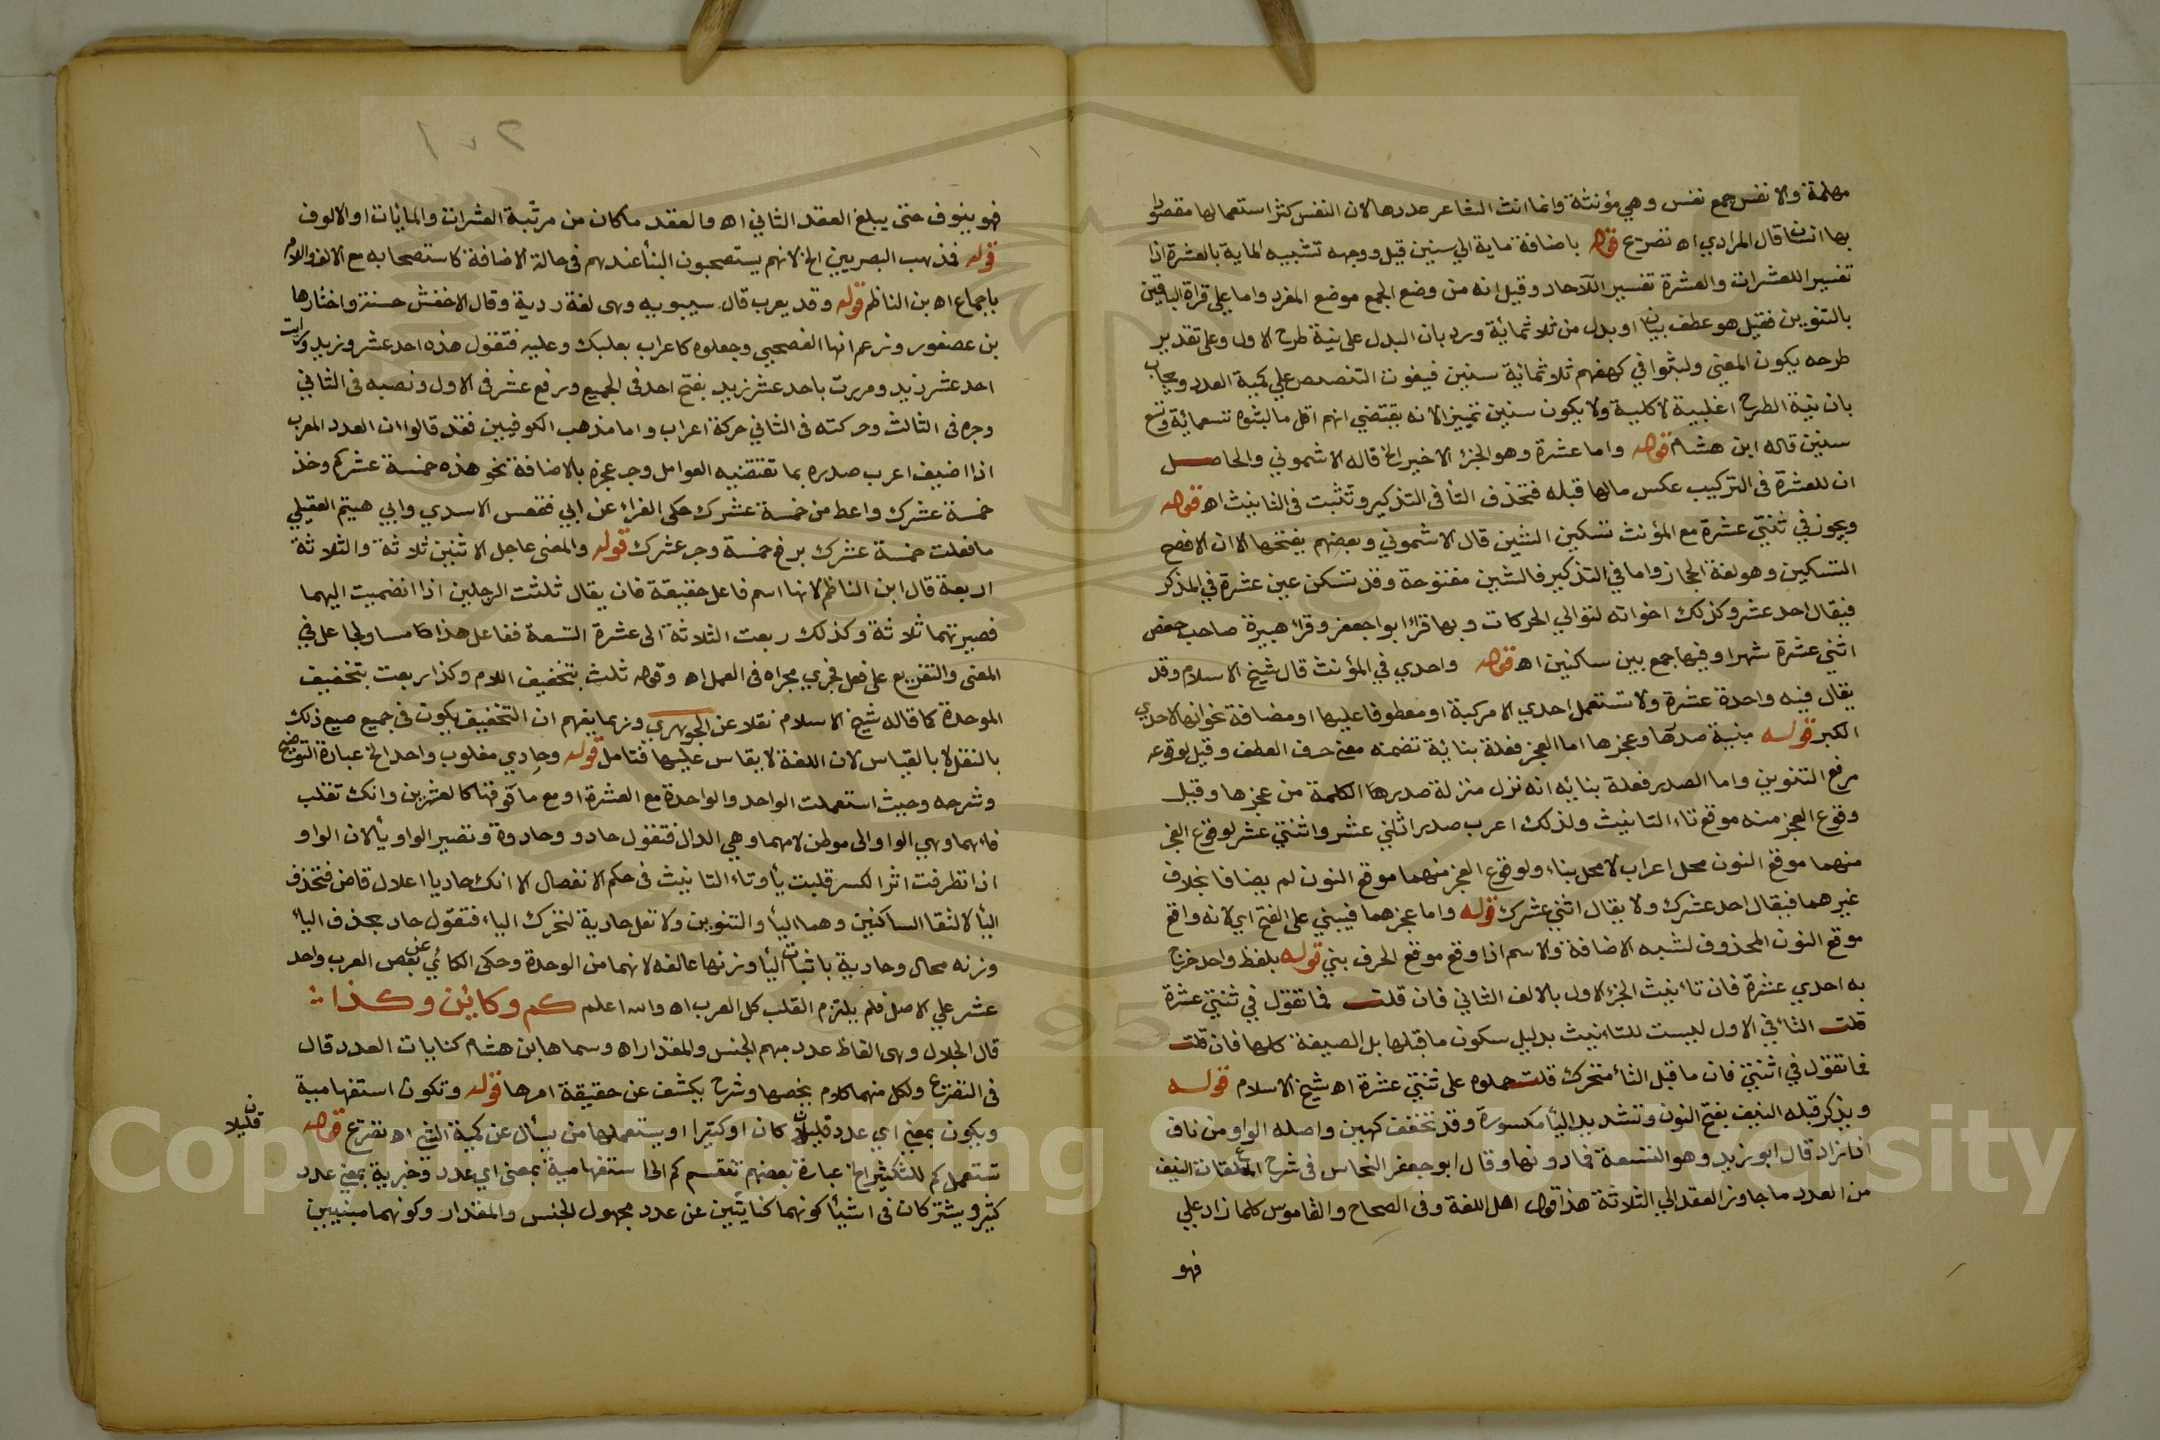 مهلمة والانفس جمع نفس وهي مؤنثة وانما انث الشاعر عددها لان النفس كثر استعمالها مقصودا
بها انسان قال المرادي اه تصريح قوله باضافة ماية الي سنين قيل ووجهه تشبيه الماية بالعشرة اذا
تفسير اللعشرات والعشرة تفسير اللآحاد وقيل انه من وضع الجمع موضع المفرد واما علي قراة الباقين
بالتنوين فقيل هو عطف بيان او بدل من ثلاثمائة ورد بان البدل على نية طرح الاول وعلى تقدير
طرحه يكون المعني ولبثوا في كهفهم ثلاثمائة سنين فيفوت التنصيص علي كمية العدد ويجاب
بان نية الطرح اغلبية لا كلية ولا يكون سنين تمييز الانه يقتضي انهم اقل ما لبثوه تسعمائية وتسع
سنين قاله ابن هشام قوله واما عشرة وهو الجزء الاخير الخ قاله الاشموني والحاصل
ان للعشرة في التركيب عكس مالها قبله فتحذف التأ في التذكير وتثبت في التانيث اه قوله
ويجوز في ثنتي عشرة مع المؤنث تسكين الشين قال الاشموني وبعضهم يفتحها الا ان الافصح
التسكين وهو لغة الحجاز واما في التذكير فالشين مفتوحة وقد تسكن عين عشرة في المذكر
فيقال احد عشر وكذلك اخواته لتوالي الحركات وبها قرأ ابو اجعفر وقرأ هبيرة صاحب حفص
اثني عشرة شهرا وفيها جمع بين ساكنين اه قوله واحدي في المؤنث قال شيخ الاسلام وقد
يقال فيه واحدة عشرة ولا تستعمل احدي الا مركبة او معطوفا عليها او مضافة نحو انها لاحدي
الكبر قوله مبنية صدرها وعجزها اما العجز فعلة بنائية تضمنه معني حرف العطف وقيل لوقوعه
مرفع التنوين واما الصدر فعلة بنائه انه نزل منزلة صدرها الكلمة من عجزها وقيل
وقوع العجز منه موقع تاء التانيث ولذلك اعرب صدر اثني عشر واثنتي عشر لوقوع العجز
منهما موقع النون محل اعراب لا محل بناء ولوقوع العجز منهما موقع النون لم يضافا بخلاف
غيرهما فيقال احد عشرك ولا يقال اثني عشرك قوله واما عجزهما فيبني على الفتح اي لانه واقع
موقع النون المحذوف لشبه الاضافة والاسم اذا وقع موقع الحرف بني قوله بلفظ واحد خرج
به احدي عشرة فان تانيث الجزء الاول بالالف الثاني فان قلت فما تقول في ثنتي عشرة
قلت التا في الاول ليست للتانيث بدليل سكون ما قبلها بل الصيغة كلها فان قلت
فما تقول في اثنتي فان ما قبل التا متحرك قلت حملوه على ثنتي عشرة اه شيخ الاسلام قوله
ويذكر قبله النيف بفتح النون وتشديد اليأ مكسورة وقد تخفف كهين واصله الواو من ناف
اذا زاد قال ابو زيد وهو التسعة فما دونها وقال ابو جعفر النحاس في شرح المعلقات النيف
من العدد ما جاوز العقد الي الثلاثة هذا قول اهل اللغة وفي الصحاح والقاموس كلما زاد علي
فهو
٢٠١
فهو ينوف حتى يبلغ العقد الثاني اه والعقد ما كان من مرتبة العشرات والمائات او الالوف
قوله فذهب البصريين الخ لانهم يستصحبون البنأ عندهم في حالة الاضافة كاستصحابه مع الالف واللام
باجماع اه بن الناظم قوله وقد يعرب قال سيبويه وهي لغة ردية وقال الاخفش حسنة واختارها
بن عصفور وزعم انها الفصحي وجعلوه كاعراب بعلبك وعليه فتقول هذه احد عشر وزيد ورايت
احد عشر زيد ومررت باحد عشر زيد بفتح احد في الجميع ورفع عشر في الاول ونصبه في الثاني
وجره في الثالث وحركته في الثاني حركة اعراب واما مذهب الكوفيين فقد قالوا ان العدد المعرب
اذا اضيف اعرب صدره بما تقتضيه العوامل وجر عجزه بالاضافة نحو هذه خمسة عشركم وخذ
خمسة عشرك واعط من خمسة عشرك حكى الفراء عن ابي فقعس الاسدي وابي هيثم العقيلي
ما فعلت خمسة عشرك برفع خمسة وجر عشرك قوله والمعنى عاجل الاثنين ثلاثة والثلاثة
اربعة قال ابن الناظم لانها اسم فاعل حقيقة فان يقال ثلثت الرجلين اذا انضميت اليهما
فصيرتهما ثلاثة وكذلك ربعت الثلاثة الى عشرة التسعة ففاعل هذا كامساو لجاعل في
المعنى والتفريع على فعل فجري مجراه في العمل اه وقوله ثلث بتخفيف اللام وكذا ربعت بتخفيف
الموحدة كما قاله شيخ الاسلام نقلا عن الجوهري وزيما يفهم ان التخفيف يكون في جميع صيغ ذلك
بالنقل لا بالقياس لان اللغة لا يقاس عليها فتامل قوله وحادي مقلوب واحد الخ عبارة التوضيح
وشرحه وحيث استعملت الواحد والواحدة مع العشرة او مع ما فوقها كالعشرين وانك تقلب
فاءهما وهي الواو الى موطن لامهما وهي الدال فتقول حادو وحادوة وتصير الواو يأ لان الواو
اذا تطرفت اثر الكسر قلبت يأ وتاء التانيث في حكم الانفصال الا انك حاديا اعلال قاض فتحذف
اليأ لالتقا الساكنين وهما اليأ والتنوين ولا تعل حادية لتحرك الياء فتقول حاد بحذف الياء
وزنه محال وحادية باثبات اليأ وزنها عالفه لانهما من الوحدة وحكى الكائي عن بعض العرب واحد
عشر علي الاصل فلم يلتزم القلب كل العرب اه والله اعلم كم وكاين وكذا
قال الجلال وهي الفاظ عدد مبهم الجنس والمقدار اه وسماها بن هشام كنايات العدد قال
في التصريح ولكل منهما كلام يخصها وشرح يكشف عن حقيقة امرها قوله وتكون استفهامية
ويكون بمعنى اي عدد قليلا كان او كثيرا ويستعملها من يسأل عن كمية الشئ اه تصريح قوله
ن قليلا
تستعمل كم للتكثير الخ عبارة بعضهم تنقسم كم الى استفهامية بمعنى اي عدد وخبرية بمعنى عدد
كثير ويشتركان في اشيأ كونهما كنايتين عن عدد مجهول الجنس والمقدار وكونهما مبنيين
Copyright © King Saud University